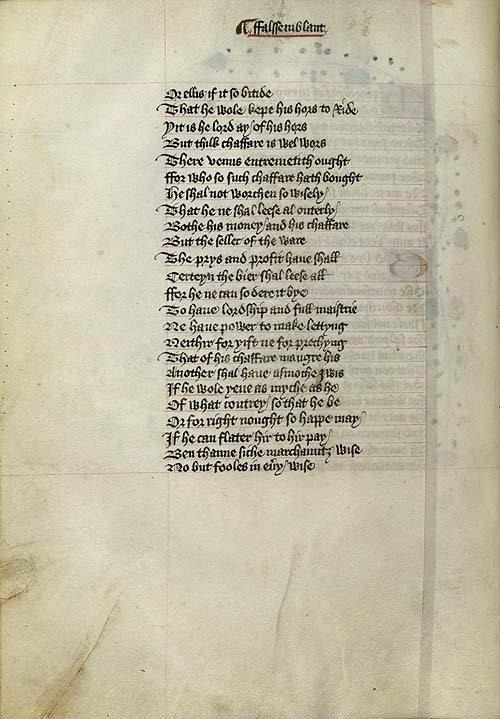 ffalssemblant
Or ellis if it so bitide
That he wole kepe his hors to Ride
Yit is he lord ay of his hors
But thilk chaffare is wel wors
There venus entremetith ought
ffor who so such chaffare hath bought
He shal not worchen so wisely
That he ne shal leese al outerly
Bothe his money and his chaffare
But the seller of the ware
The prys and profit haue shall
Certeyn the bier shal leese all
ffor he ne can so dere it bye
To haue lordship and full maistrie
Ne haue power to make lettyng
Neithir for yift ne for prechyng
That of his chaffare maugre his
Another shal haue asmoche ywis
If he wole yeue as myche as he
Of what contrey so that he be
Or for right nought so happe may
If he can flater hir to hir pay
Ben thanne siche marchauntz wise
No but fooles in eu'y wise